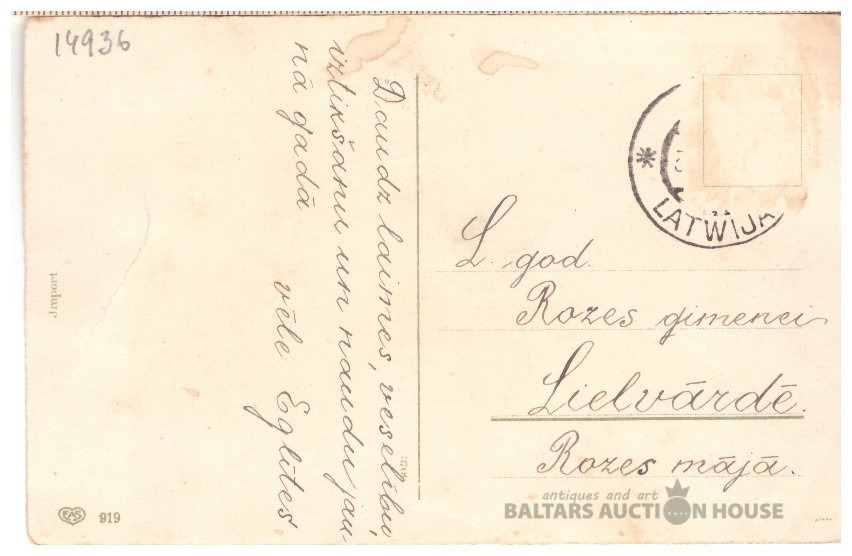 14936
Daudz laimes, veselību,
iztikšanu un naudu jau-
nā gadā
vēle Eglītes.
LATWIJA
L. god.
Rozes ģimenei
Lielvārdē.
Rozes mājā.
Import
EAS 919
antiques and art
BALTARS AUCTION HOUSE